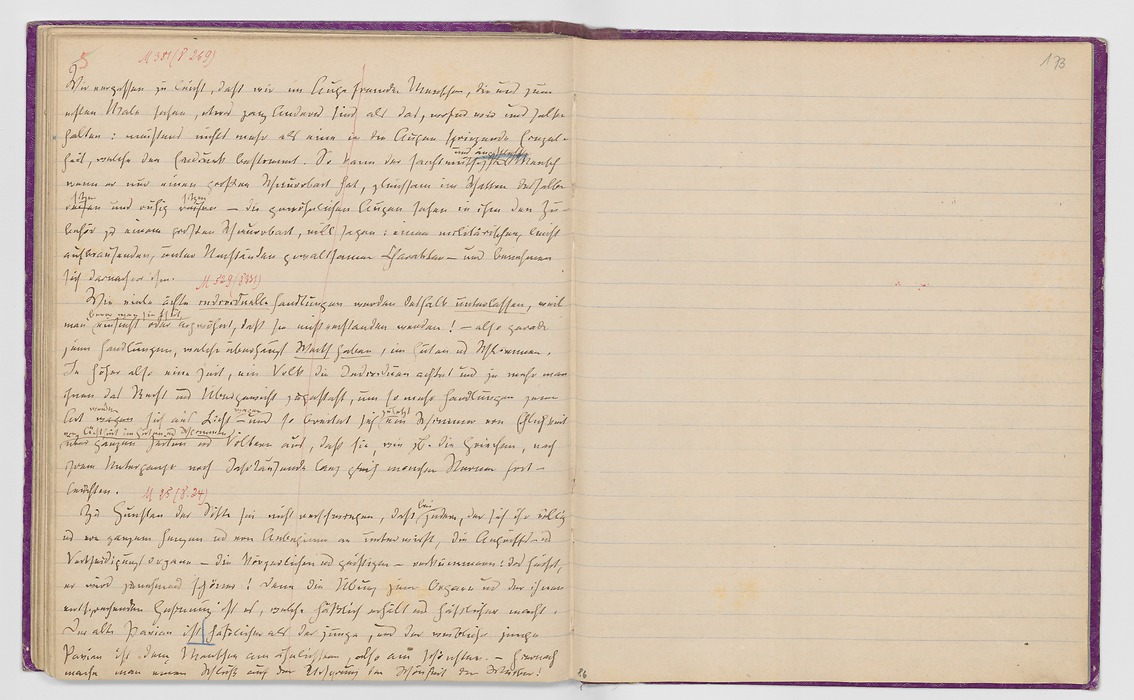 5 M 381 (S 269) 173
Wir vergessen zu leicht, daß wir im Auge fremder Menschen, die uns zum
ersten Male sehen, etwas ganz Anderes sind als das, wofür wir uns selber
halten: meistens nichts mehr als eine in die Augen springende Einzel-
heit, welche den Eindruck bestimmt. So kann der sanftmüthigste Mensch
wenn er nur einen großen Schnurrbart hat, gleichsam im Schatten desselben
sitzen und ruhig sitzen — die gewöhnlichen Augen sehen in ihm den Zu-
behör zu einem großen Schnurrbart, will sagen: einen militärischen, leicht
aufbrausenden, unter Umständen gewaltsamen Charakter — und benehmen
sich darnach vor ihm.
M 529 (S 331)
Wie viele ächte individuelle Handlungen werden deshalb unterlassen, weil
bevor man sie thut,
man einsieht oder argwöhnt, daß sie mißverstanden werden! — also gerade
jene Handlungen, welche überhaupt Werth haben, im Guten und Schlimmen.
Je höher also eine Zeit, ein Volk die Individuen achtet und je mehr man
ihnen das Recht und Übergewicht zugesteht, um so mehr Handlungen jener
Art werden sich ans Licht wagen und so breitet sich zuletzt ein Schimmer von Ehrlichkeit
von Ächtheit im Guten und Schlimmen
über ganzen Zeiten und Völkern aus, daß sie, wie zb. die Griechen, nach
ihrem Untergange noch Jahrtausende lang gleich manchen Sternen fort-
leuchten.
M 25 (S. 24)
Zu Gunsten der Sitte sei nicht verschwiegen, daß bei jedem, der sich ihr völlig
und von ganzem Herzen und von Anbeginn an unterwirft, die Angriffs- und
Vertheidigungsorgane — die körperlichen und geistigen — verkümmern: das heißt,
er wird zunehmend schöner! Denn die Übung jener Organe und der ihnen
entsprechenden Gesinnung ist es, welche häßlich erhält und häßlicher macht.
Der alte Pavian ist häßlicher als der junge, und der weibliche junge
Pavian ist dem Menschen am ähnlichsten, also am schönsten. — Hiernach
mache man einen Schluß auf den Ursprung der Schönheit der Weiber!
86